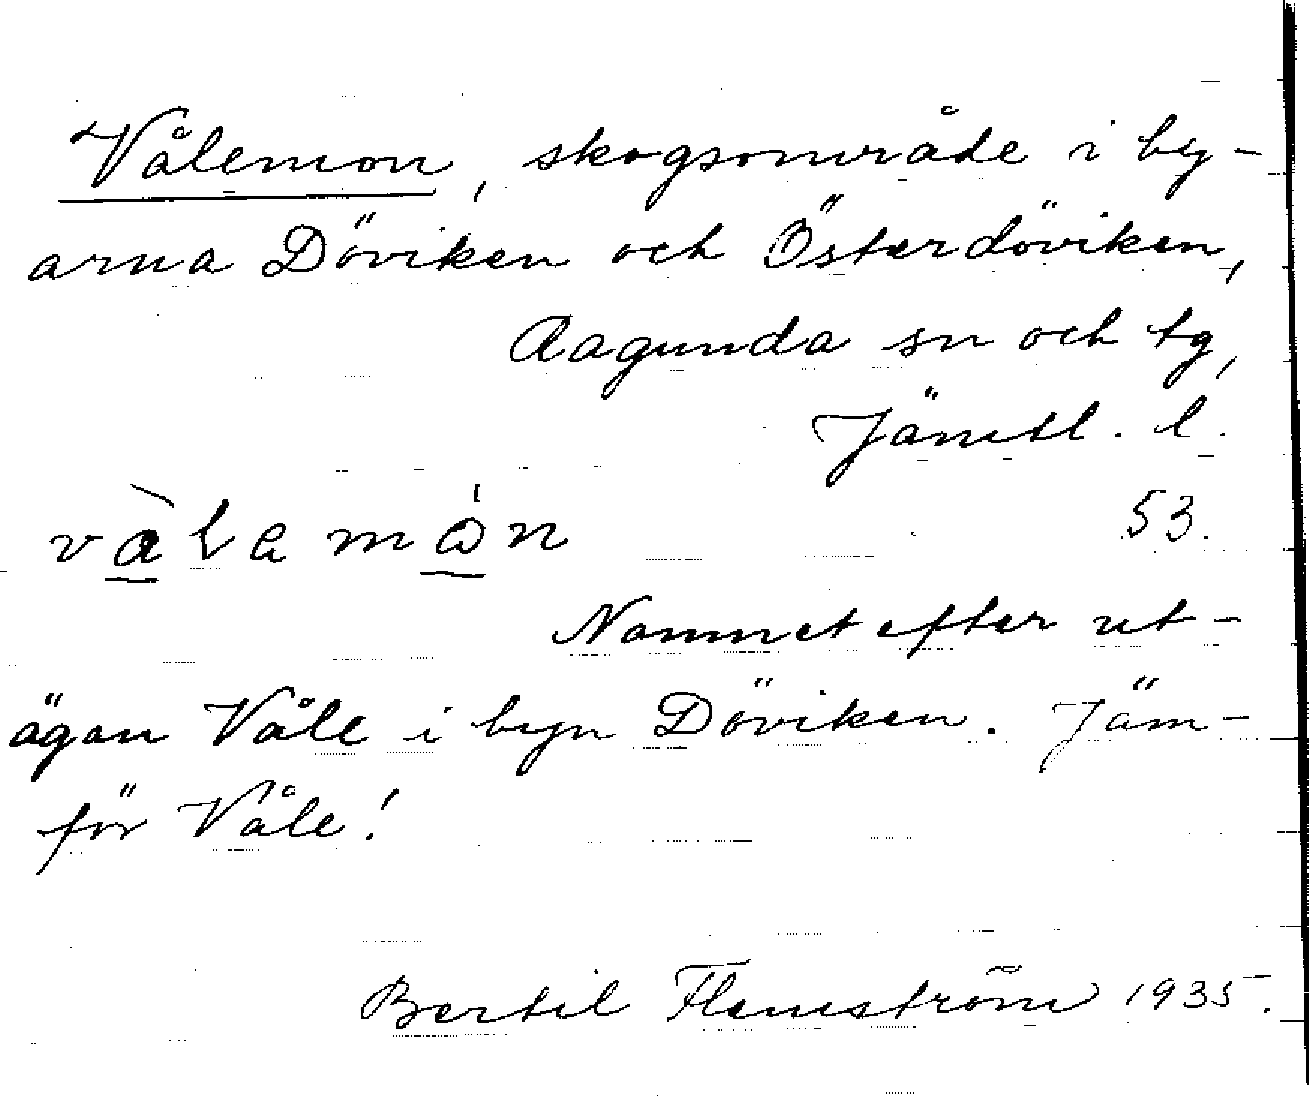 Vålemon, skogsområde i by-
arna Döviken och Österdöviken,
Ragunda sn och tg,
Jämtl. l.
53.
Namnet efter ut-
ägan Våle i byn Döviken. Jäm-
för Våle!
Bertil Flemström 1935.